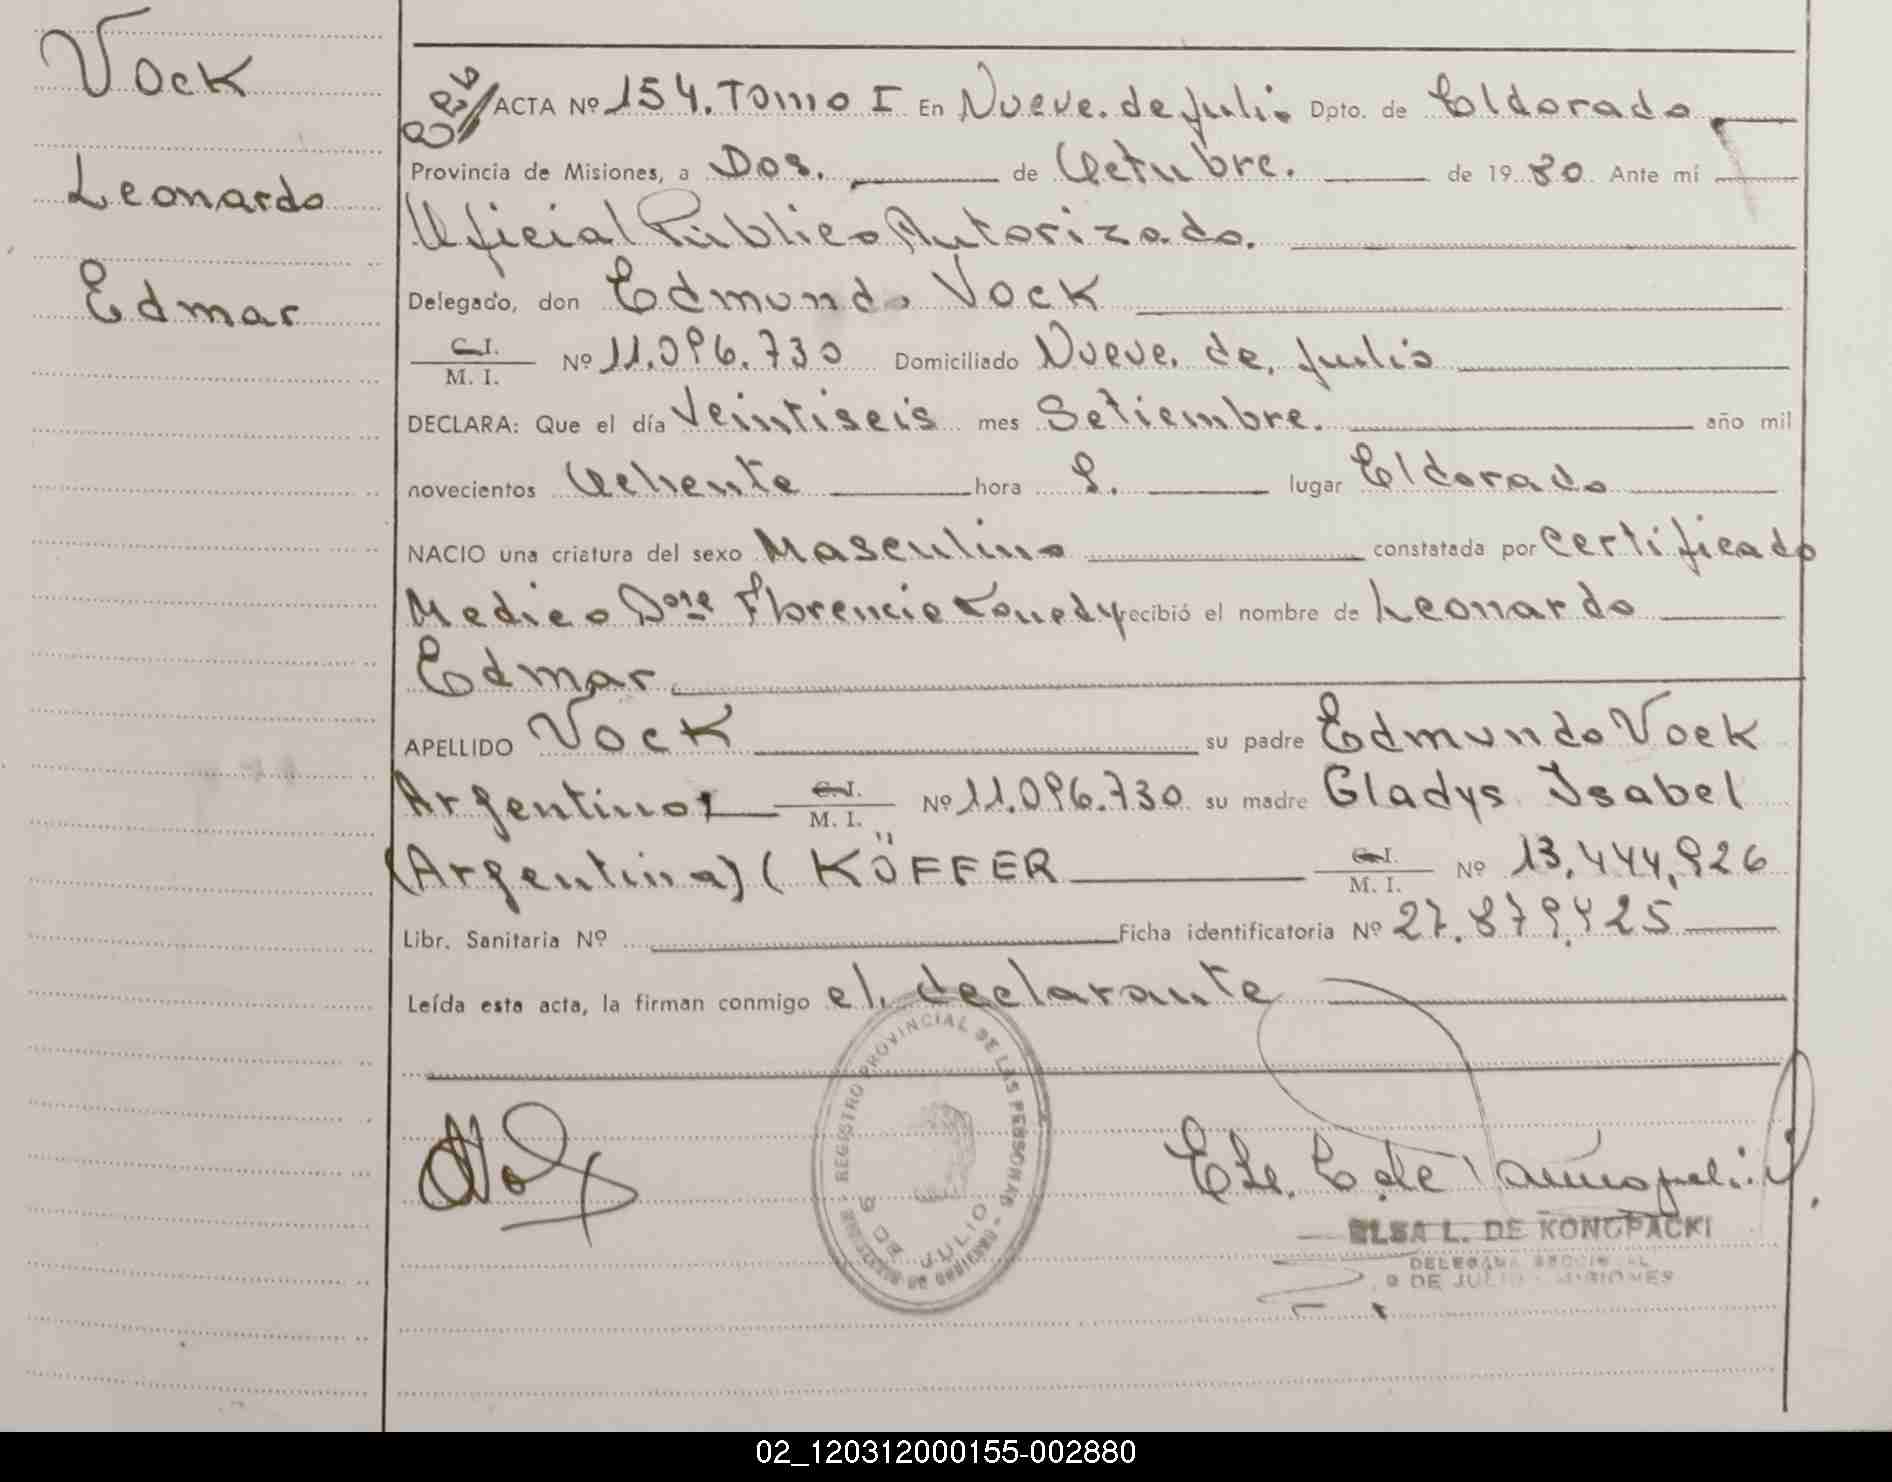 Vock
Leonardo
Edmar
ACTA Nº 154. Tomo I En Nueve. de Julio Dpto. de Eldorado
Provincia de Misiones, a Dos. de Octubre. de 19 80 Ante mí
Oficial Público Autorizado.
Delegado, don Edmundo Vock
C.I. / M. I. Nº 11.096.730 Domiciliado Nueve. de. Julio
DECLARA: Que el día Veintiseis mes Setiembre. año mil
novecientos Ochenta hora lugar Eldorado
NACIO una criatura del sexo Masculino constatada por Certificado
Medico Florencio recibió el nombre de Leonardo
Edmar
APELLIDO Vock su padre Edmundo Vock
Argentino C.I. / M. I. Nº 11.096.730 su madre Gladys Isabel
(Argentina) ( KÖFFER C.I. / M. I. Nº 13.444.926
Libr. Sanitaria Nº Ficha identificatoria Nº 27.879.425
Leída esta acta, la firman conmigo el. declarante
REGISTRO PROVINCIAL DE LAS PERSONAS
9 DE JULIO
ELSA L. DE KONOPACKI
DELEGADA SECCIONAL
9 DE JULIO - MISIONES
02_120312000155-002880